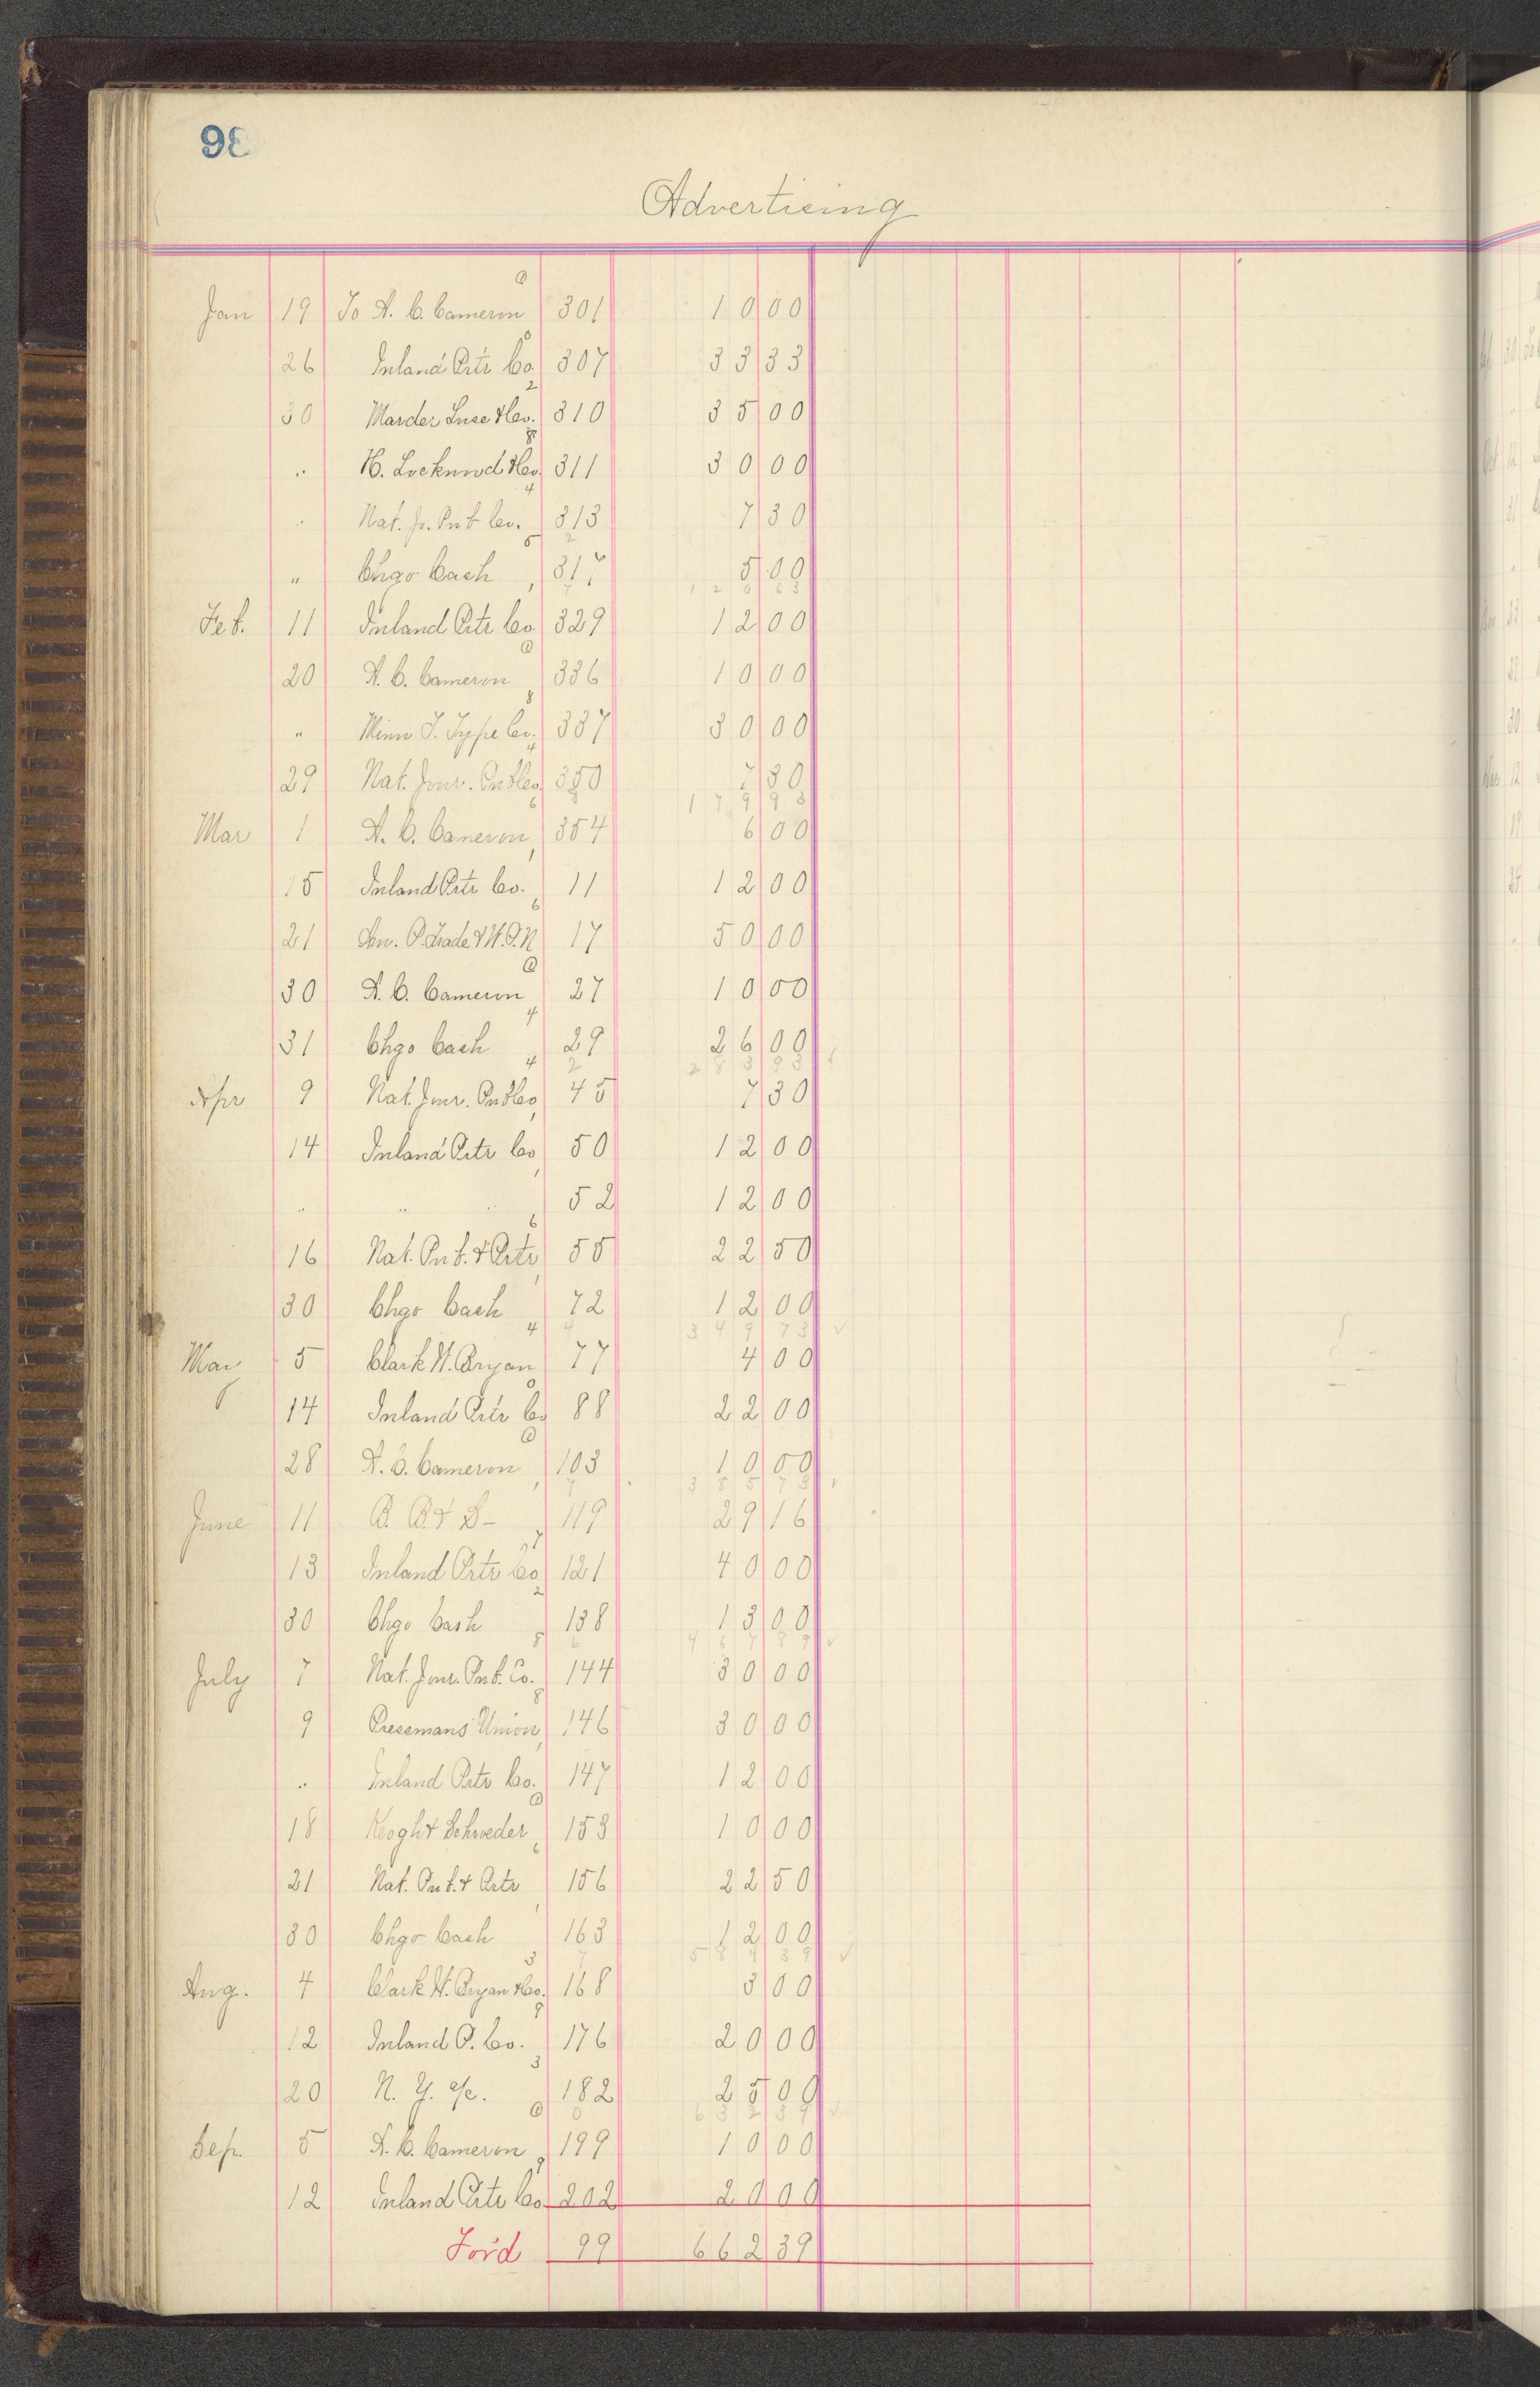 98
Advertising
Jan 19 To A. C. Cameron 301 10 00
26 Inland Prtr Co. 307 33 33
30 Marder Luse & Co. 310 35 00
" H. Lockwood & Co. 311 30 00
" Nat. Jr. Pub Co. 313 7 30
" Chgo Cash 317 5 00
120 63
Feb. 11 Inland Prtr Co. 329 12 00
20 A. C. Cameron 336 10 00
" Minn T. Type Co. 337 30 00
29 Nat. Jour. Pub Co. 350 7 30
179 93
Mar 1 A. C. Cameron 354 6 00
15 Inland Prtr Co. 11 12 00
21 Am. P. Trade & W. P. N 17 50 00
30 A. C. Cameron 27 10 00
31 Chgo Cash 29 26 00
283 93
Apr 9 Nat. Jour. Pub Co 45 7 30
14 Inland Prtr Co 50 12 00
" " " 52 12 00
16 Nat. Pub. & Prtr 55 22 50
30 Chgo Cash 72 12 00
349 73 ✓
May 5 Clark W. Bryan 77 4 00
14 Inland Prtr Co 88 22 00
28 A. C. Cameron 103 10 00
385 73 ✓
June 11 B. B. & S— 119 29 16
13 Inland Prtr Co 121 40 00
30 Chgo Cash 138 13 00
467 89 ✓
July 7 Nat. Jour. Pub. Co. 144 30 00
9 Pressmans Union 146 30 00
" Inland Prtr Co. 147 12 00
18 Keogh & Schroeder 153 10 00
21 Nat. Pub. & Prtr 156 22 50
30 Chgo Cash 163 12 00
584 39 ✓
Aug. 4 Clark W. Bryan & Co. 168 3 00
12 Inland P. Co. 176 20 00
20 N. Y. a/c. 182 25 00
632 39 ✓
Sep. 5 A. C. Cameron 199 10 00
12 Inland Prtr Co 202 20 00
For'd 99 662 39